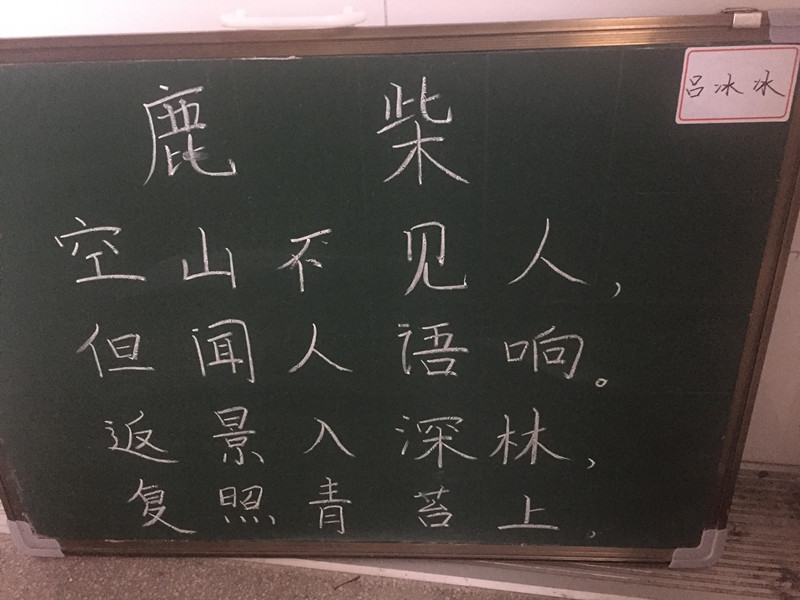 鹿柴
吕冰冰
空山不见人，
但闻人语响。
返景入深林，
复照青苔上。